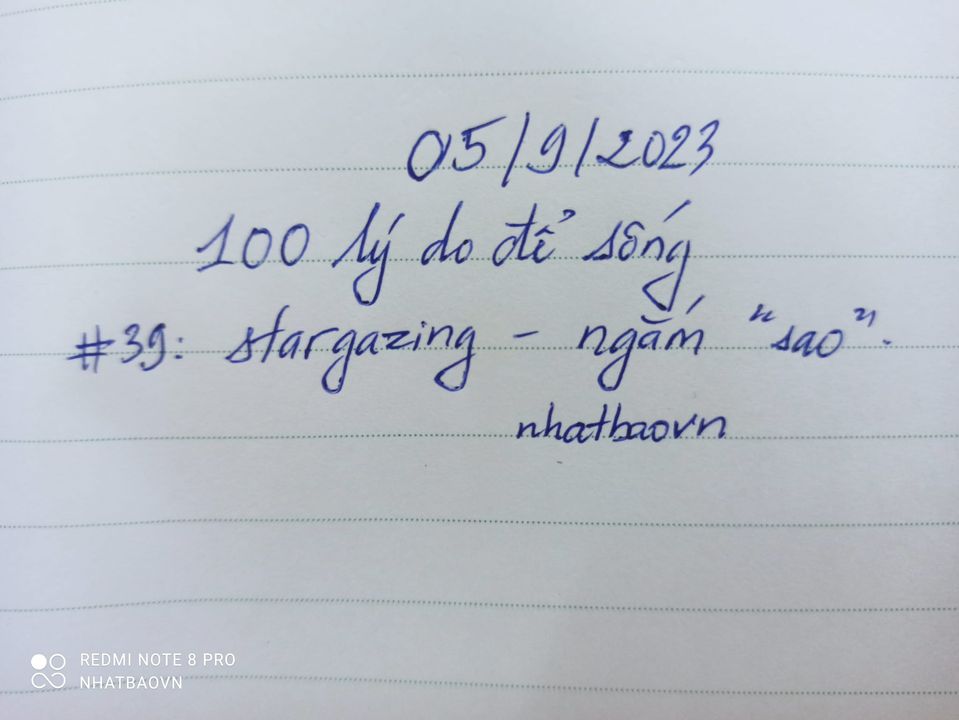 05/9/2023
100 lý do để sống
#39: stargazing - ngắm "sao".
nhatbaovn
REDMI NOTE 8 PRO
NHATBAOVN